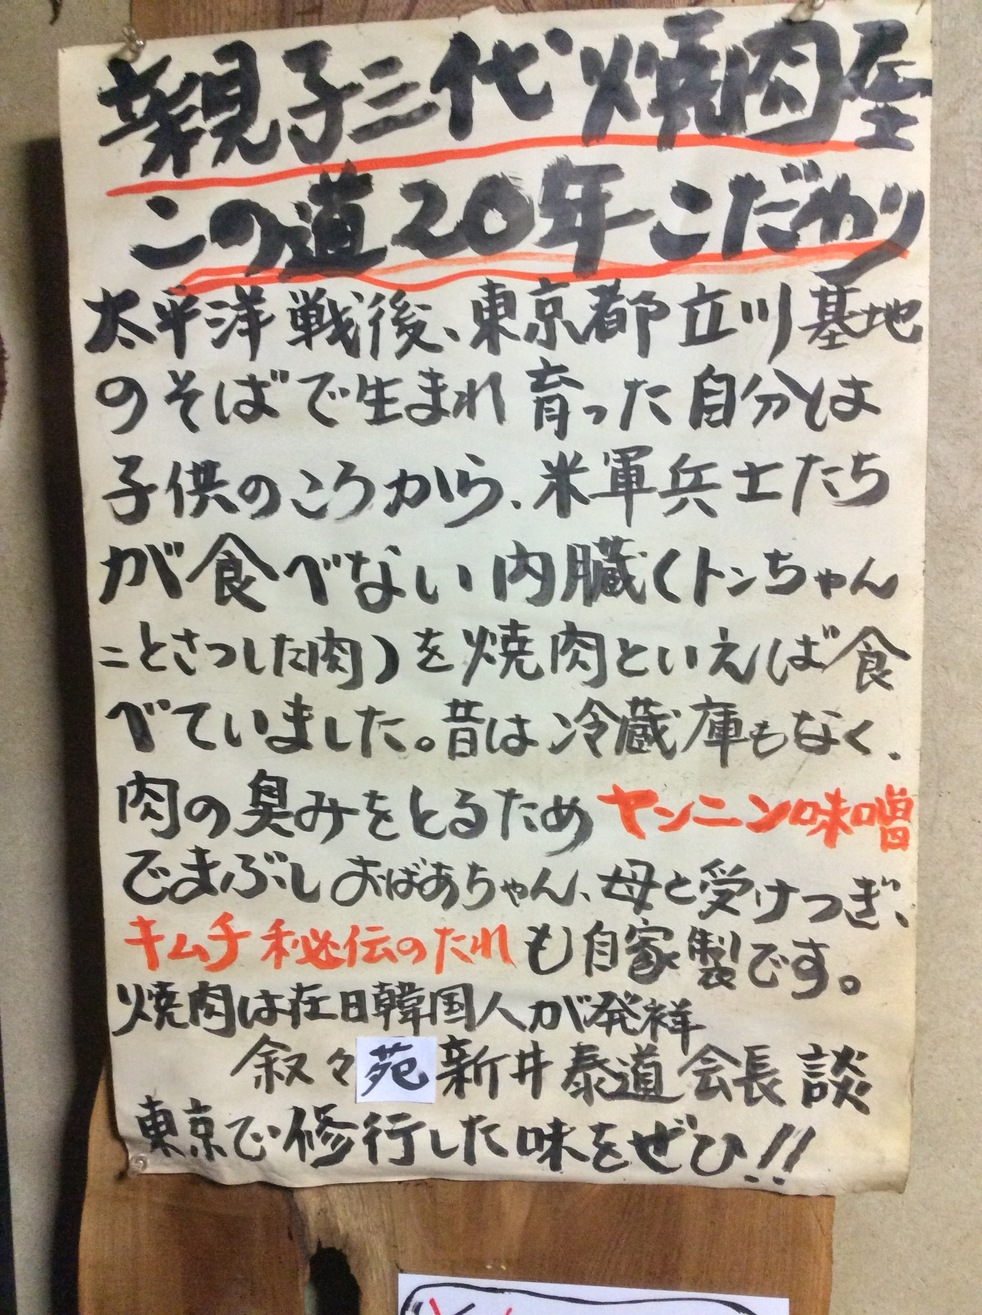 親子三代焼肉屋
この道20年こだわり
太平洋戦後、東京都立川基地
のそばで生まれ育った自分は
子供のころから、米軍兵士たち
が食べない内臓(トンちゃん
ことさつした肉)を焼肉といえば食
べていました。昔は冷蔵庫もなく、
肉の臭みをとるためヤンニン味噌
でまぶしおばあちゃん、母と受けつぎ、
キムチ秘伝のたれも自家製です。
焼肉は在日韓国人が発祥
叙々苑新井泰道会長談
東京で修行した味をぜひ!!